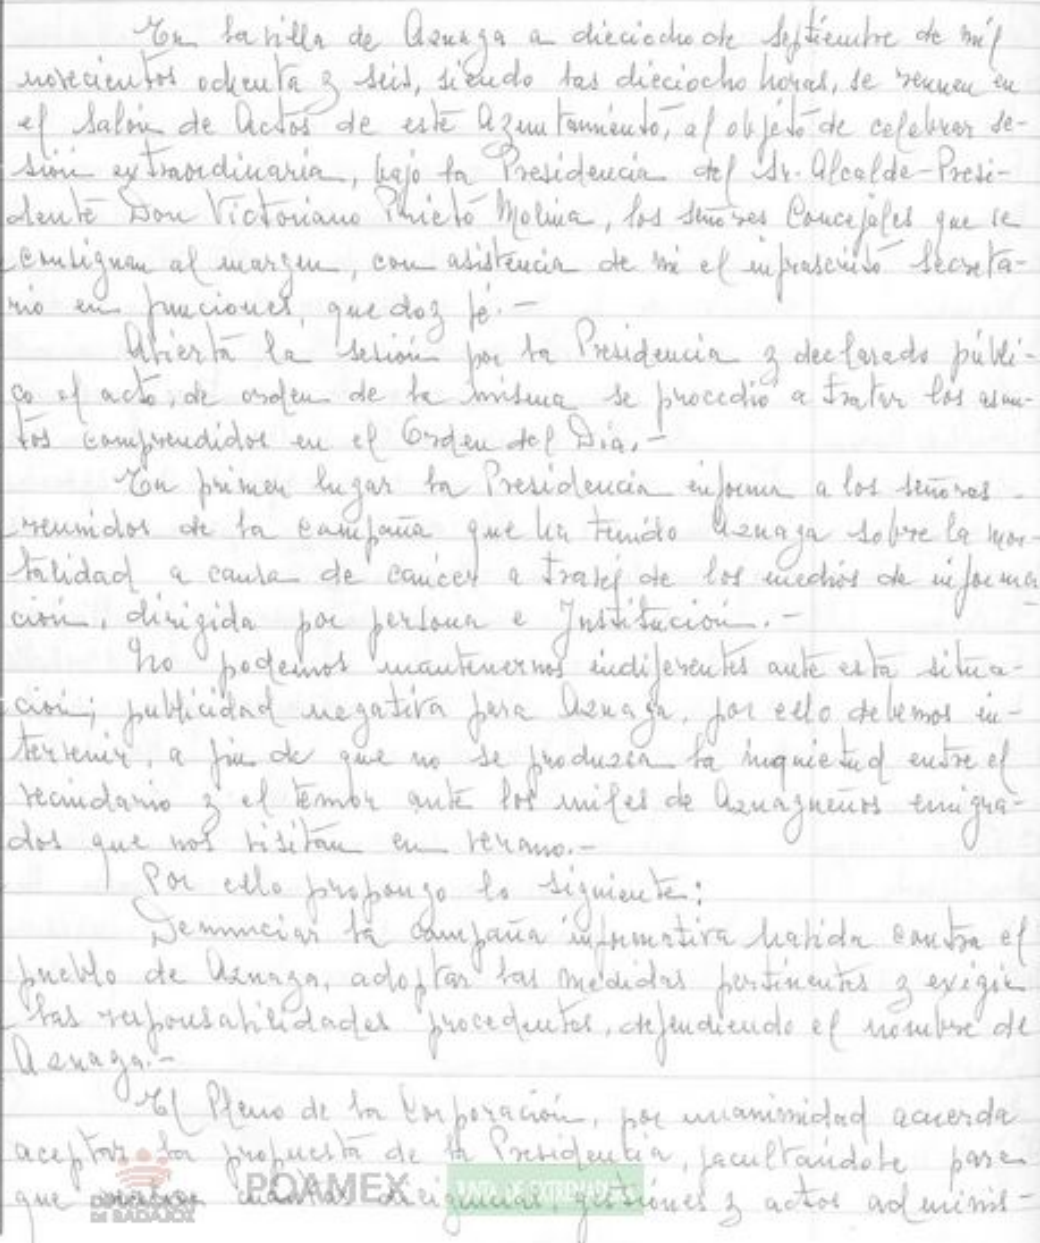 En la villa de Azuaga a dieciocho de septiembre de mil
novecientos ochenta y seis, siendo las dieciocho horas, se reunen en
el Salón de Actos de este Ayuntamiento, al objeto de celebrar se-
sión extraordinaria, bajo la Presidencia del Sr. Alcalde-Presi-
dente Don Victoriano Prieto Molina, los señores Concejales que se
consignan al margen, con asistencia de mi el infrascrito Secreta-
rio en funciones, que doy fé.-
Abierta la sesión por la Presidencia y declarado públi-
co el acto, de orden de la misma se procedió a tratar los asun-
tos comprendidos en el Orden del Dia.-
En primer lugar la Presidencia informa a los señores
reunidos de la campaña que ha tenido Azuaga sobre la mor-
talidad a causa de cáncer a través de los medios de informa
ción, dirigida por persona e Institución.-
No podemos mantenernos indiferentes ante esta situa-
ción; publicidad negativa para Azuaga, por ello debemos in-
tervenir, a fin de que no se produzca la inquietud entre el
vecindario y el temor ante los miles de Azuagueños emigra-
dos que nos visitan en verano.-
Por ello propongo lo siguiente:
Denunciar la campaña informativa habida contra el
pueblo de Azuaga, adoptar las medidas pertinentes y exigir
las responsabilidades procedentes, defendiendo el nombre de
Azuaga.-
El Pleno de la Corporación, por unanimidad acuerda
aceptar la propuesta de la Presidencia, facultándole para
que cuantas diligencias, gestiones y actos adminis-
DIPUTACIÓN DE BADAJOZ POAMEX JUNTA DE EXTREMADURA